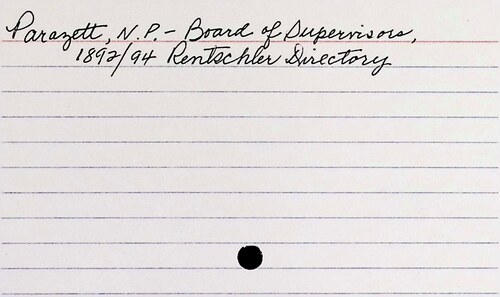 Parazett, N.P. - Board of Supervisors,
1892/94 Rentschler Directory